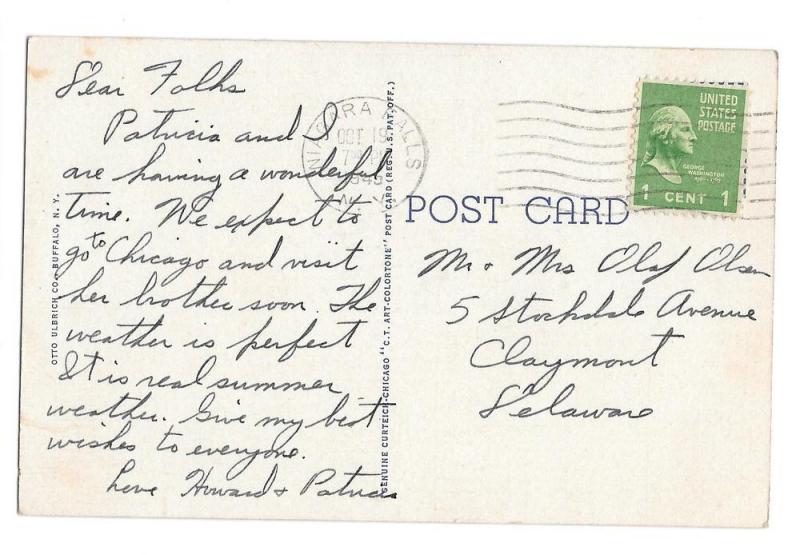 Dear Folks
Patricia and I
are having a wonderful
time. We expect to
go to Chicago and visit
her brother soon. The
weather is perfect
It is real summer
weather. Give my best
wishes to everyone.
Love Howard & Patricia
OTTO ULBRICH CO., BUFFALO, N. Y.
GENUINE CURTEICH-CHICAGO "C.T. ART-COLORTONE" POST CARD (REG. U.S. PAT. OFF.)
NIAGARA FALLS
OCT 19
7 PM
1949
N. Y.
UNITED
STATES
POSTAGE
GEORGE
WASHINGTON
1 CENT 1
POST CARD
Mr & Mrs Olaf Olsen
5 Stockdale Avenue
Claymont
Delaware